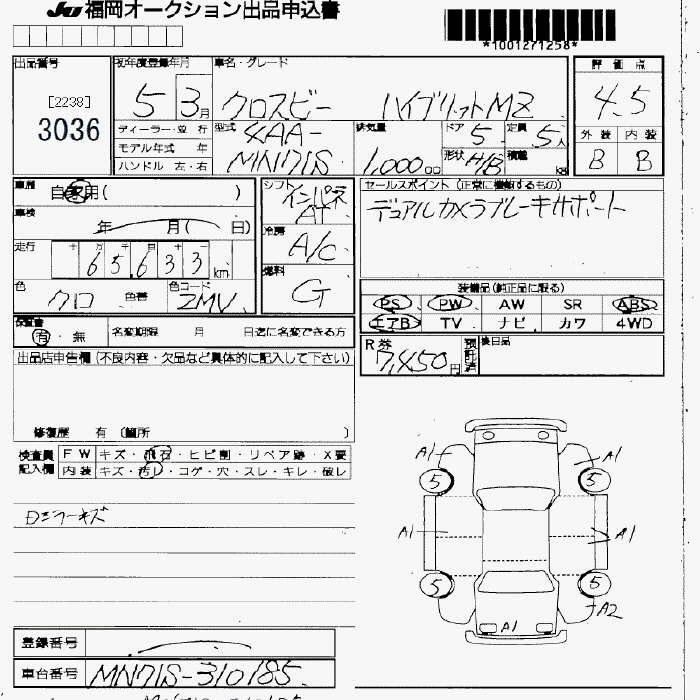 JU 福岡オークション出品申込書
*1001271258*
出品番号
[2238]
3036
初年度登録年月
5 3月
車名・グレード
クロスビー ハイブリットMZ
評価点
4.5
外装 内装
B B
ディーラー・並行
モデル年式 年
ハンドル 左・右
型式
4AA-
MN71S
排気量
1,000 cc
ドア 5
形状 H/B
定員 5人
積載 kg
車歴
自家用( )
車検
年 月( 日)
走行
十 万 千 百 十 一
65,633 km
色
クロ
色替
色コード
ZMV
シフト
インパネ
AT
冷房
A/C
燃料
G
セールスポイント (正常に機能するもの)
デュアルカメラブレーキサポート
装備品(純正品に限る)
PS PW AW SR ABS
エアB TV ナビ カワ 4WD
保証書
有・無
名変期限 月 日迄に名変できる方
R券
7,450円
預託済
後日品
出品店申告欄(不良内容・欠品など具体的に記入して下さい)
修復歴 有 〔箇所 〕
検査員
記入欄
FW キズ・飛石・ヒビ割・リペア跡・X要
内装 キズ・汚レ・コゲ・穴・スレ・キレ・破レ
Dミラーキズ
A1 A1
5 5
A1 A1
5 5
A1 A2
登録番号
車台番号
MN71S-310185